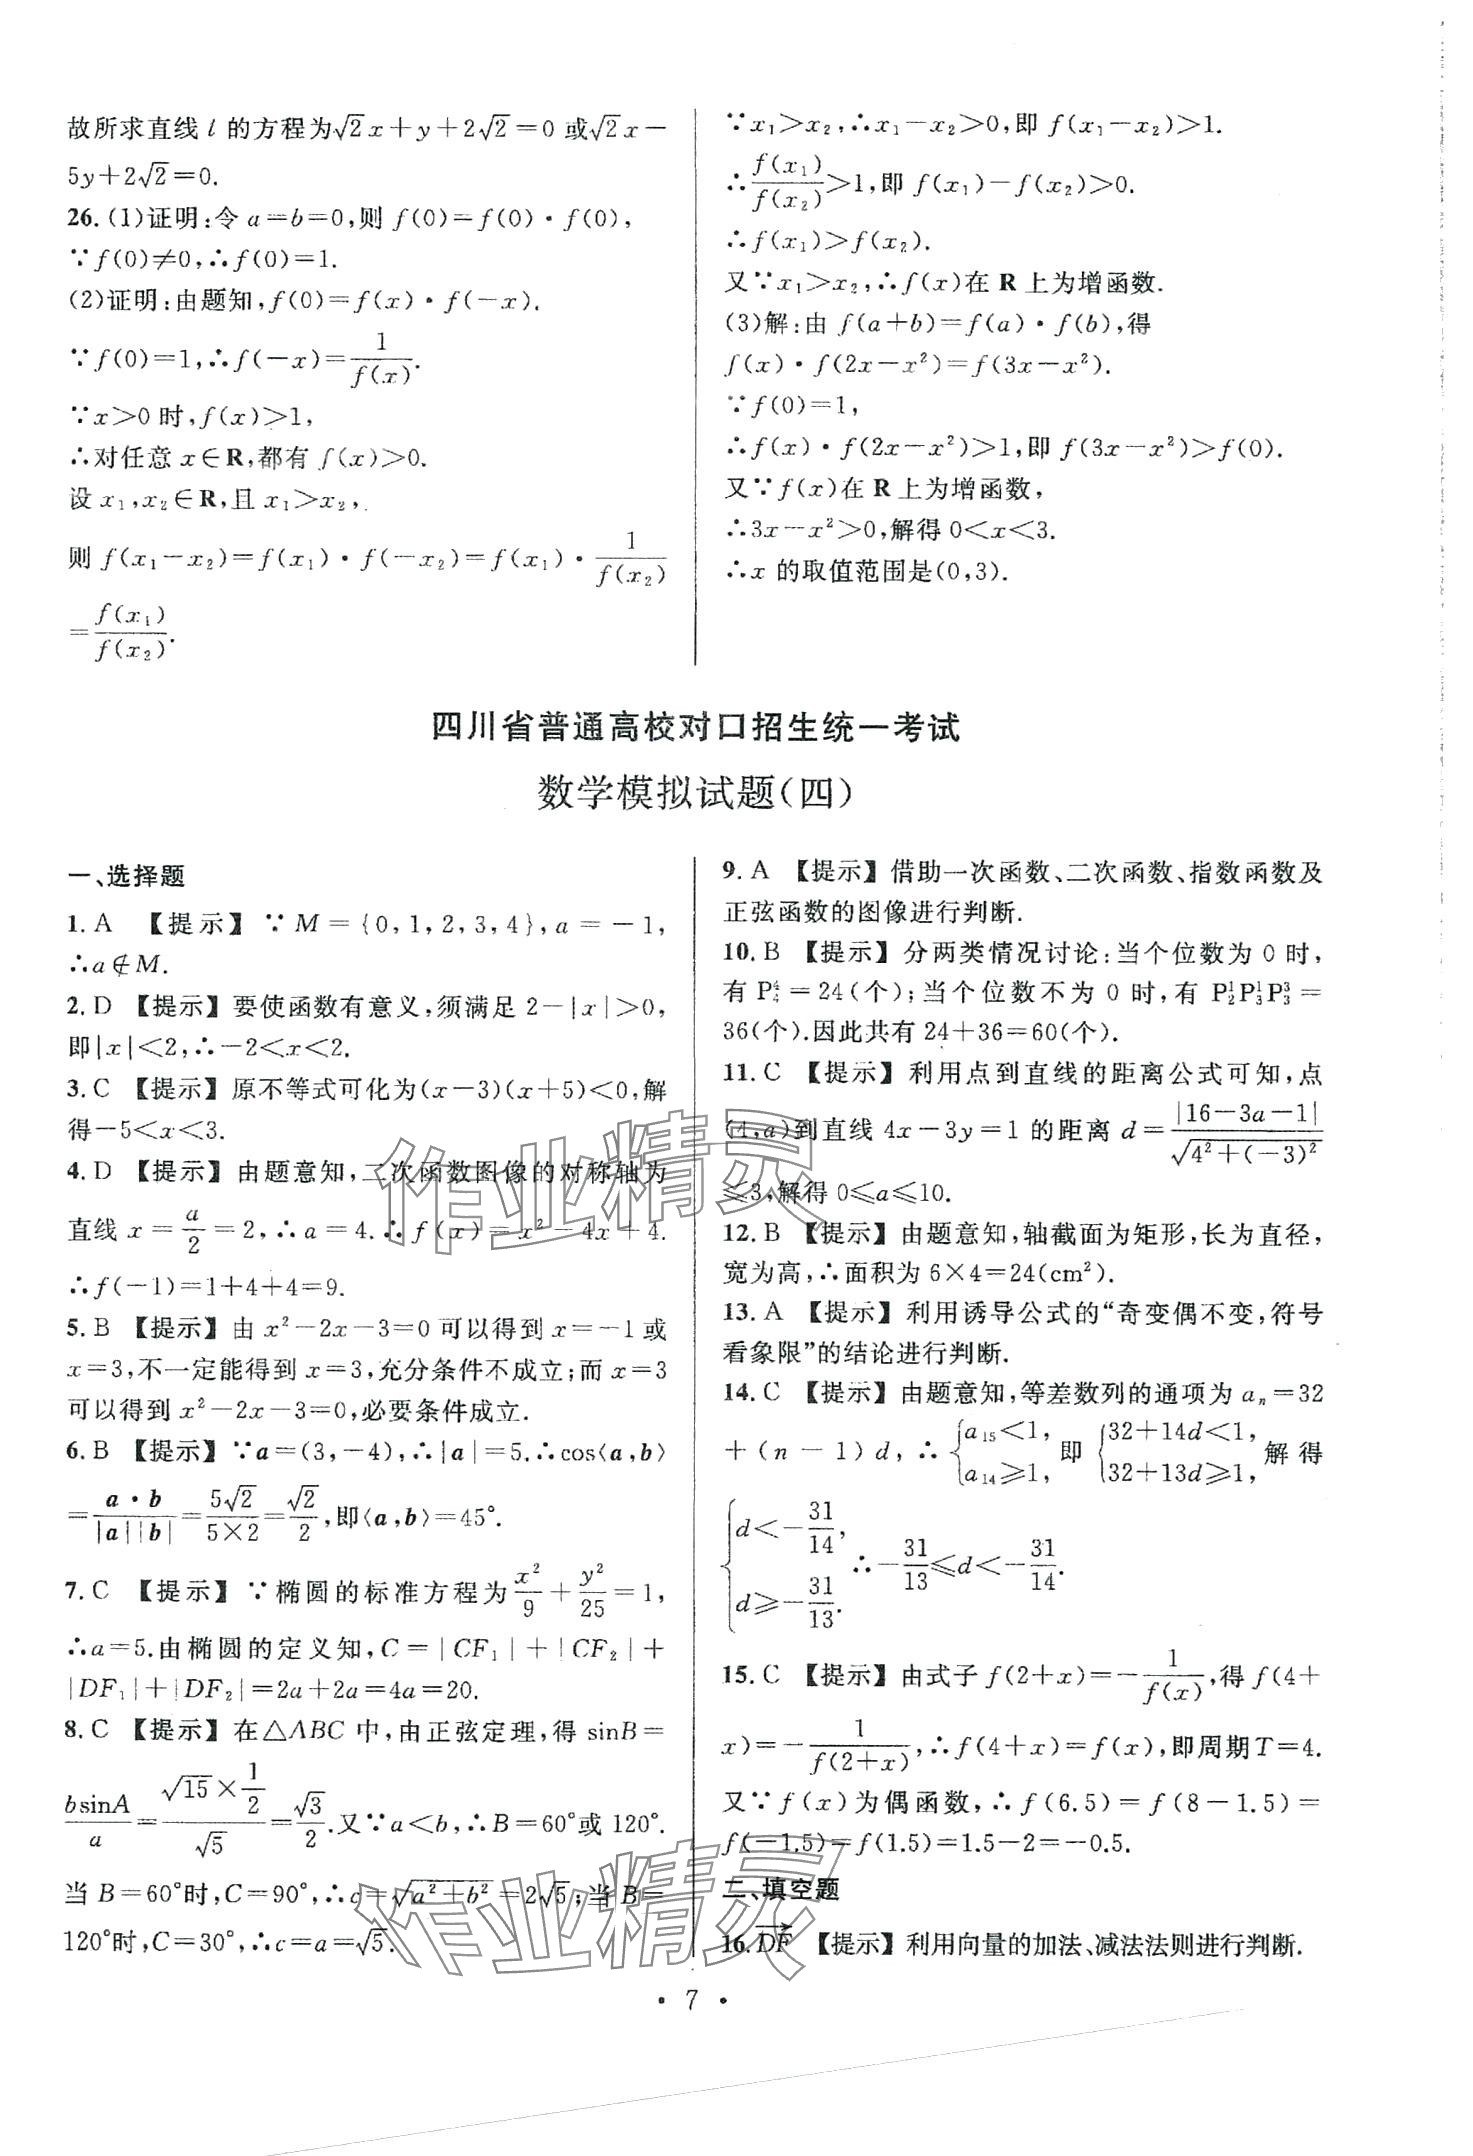 故所求直线 l 的方程为√2x+y+2√2=0 或√2x-
5y+2√2=0.
26.(1)证明:令 a=b=0,则 f(0)=f(0)·f(0),
∵f(0)≠0,∴f(0)=1.
(2)证明:由题知,f(0)=f(x)·f(-x).
∵f(0)=1,∴f(-x)=1/f(x).
∵x>0 时,f(x)>1,
∴对任意 x∈R,都有 f(x)>0.
设 x₁,x₂∈R,且 x₁>x₂,
则 f(x₁-x₂)=f(x₁)·f(-x₂)=f(x₁)·1/f(x₂)
=f(x₁)/f(x₂).
∵x₁>x₂,∴x₁-x₂>0,即 f(x₁-x₂)>1.
∴f(x₁)/f(x₂)>1,即 f(x₁)-f(x₂)>0.
∴f(x₁)>f(x₂).
又∵x₁>x₂,∴f(x)在 R 上为增函数.
(3)解:由 f(a+b)=f(a)·f(b),得
f(x)·f(2x-x²)=f(3x-x²).
∵f(0)=1,
∴f(x)·f(2x-x²)>1,即 f(3x-x²)>f(0).
又∵f(x)在 R 上为增函数,
∴3x-x²>0,解得 0<x<3.
∴x 的取值范围是(0,3).
四川省普通高校对口招生统一考试
数学模拟试题(四)
一、选择题
1.A 【提示】∵M={0,1,2,3,4},a=-1,
∴a∉M.
2.D 【提示】要使函数有意义,须满足 2-|x|>0,
即|x|<2,∴-2<x<2.
3.C 【提示】原不等式可化为(x-3)(x+5)<0,解
得-5<x<3.
4.D 【提示】由题意知,二次函数图像的对称轴为
直线 x=a/2=2,∴a=4.∴f(x)=x²-4x+4.
∴f(-1)=1+4+4=9.
5.B 【提示】由 x²-2x-3=0 可以得到 x=-1 或
x=3,不一定能得到 x=3,充分条件不成立;而 x=3
可以得到 x²-2x-3=0,必要条件成立.
6.B 【提示】∵a=(3,-4),∴|a|=5.∴cos⟨a,b⟩
=a·b/|a||b|=5√2/5×2=√2/2,即⟨a,b⟩=45°.
7.C 【提示】∵椭圆的标准方程为x²/9+y²/25=1,
∴a=5.由椭圆的定义知,C=|CF₁|+|CF₂|+
|DF₁|+|DF₂|=2a+2a=4a=20.
8.C 【提示】在△ABC 中,由正弦定理,得 sinB=
bsinA/a=(√15×1/2)/√5=√3/2.又∵a<b,∴B=60°或 120°.
当 B=60°时,C=90°,∴c=√(a²+b²)=2√5;当 B=
120°时,C=30°,∴c=a=√5.
9.A 【提示】借助一次函数、二次函数、指数函数及
正弦函数的图像进行判断.
10.B 【提示】分两类情况讨论:当个位数为 0 时,
有 P₄⁴=24(个);当个位数不为 0 时,有 P₂¹P₃¹P₃³=
36(个).因此共有 24+36=60(个).
11.C 【提示】利用点到直线的距离公式可知,点
(4,a)到直线 4x-3y=1 的距离 d=|16-3a-1|/√(4²+(-3)²)
≤3,解得 0≤a≤10.
12.B 【提示】由题意知,轴截面为矩形,长为直径,
宽为高,∴面积为 6×4=24(cm²).
13.A 【提示】利用诱导公式的“奇变偶不变,符号
看象限”的结论进行判断.
14.C 【提示】由题意知,等差数列的通项为 aₙ=32
+(n-1)d,∴{a₁₅<1, a₁₄≥1, 即 {32+14d<1, 32+13d≥1, 解得
{d<-31/14, d≥-31/13. ∴-31/13≤d<-31/14.
15.C 【提示】由式子 f(2+x)=-1/f(x),得 f(4+
x)=-1/f(2+x),∴f(4+x)=f(x),即周期T=4.
又∵f(x)为偶函数,∴f(6.5)=f(8-1.5)=
f(-1.5)=f(1.5)=1.5-2=-0.5.
二、填空题
16.DF→ 【提示】利用向量的加法、减法法则进行判断.
·7·
作业精灵
作业精灵